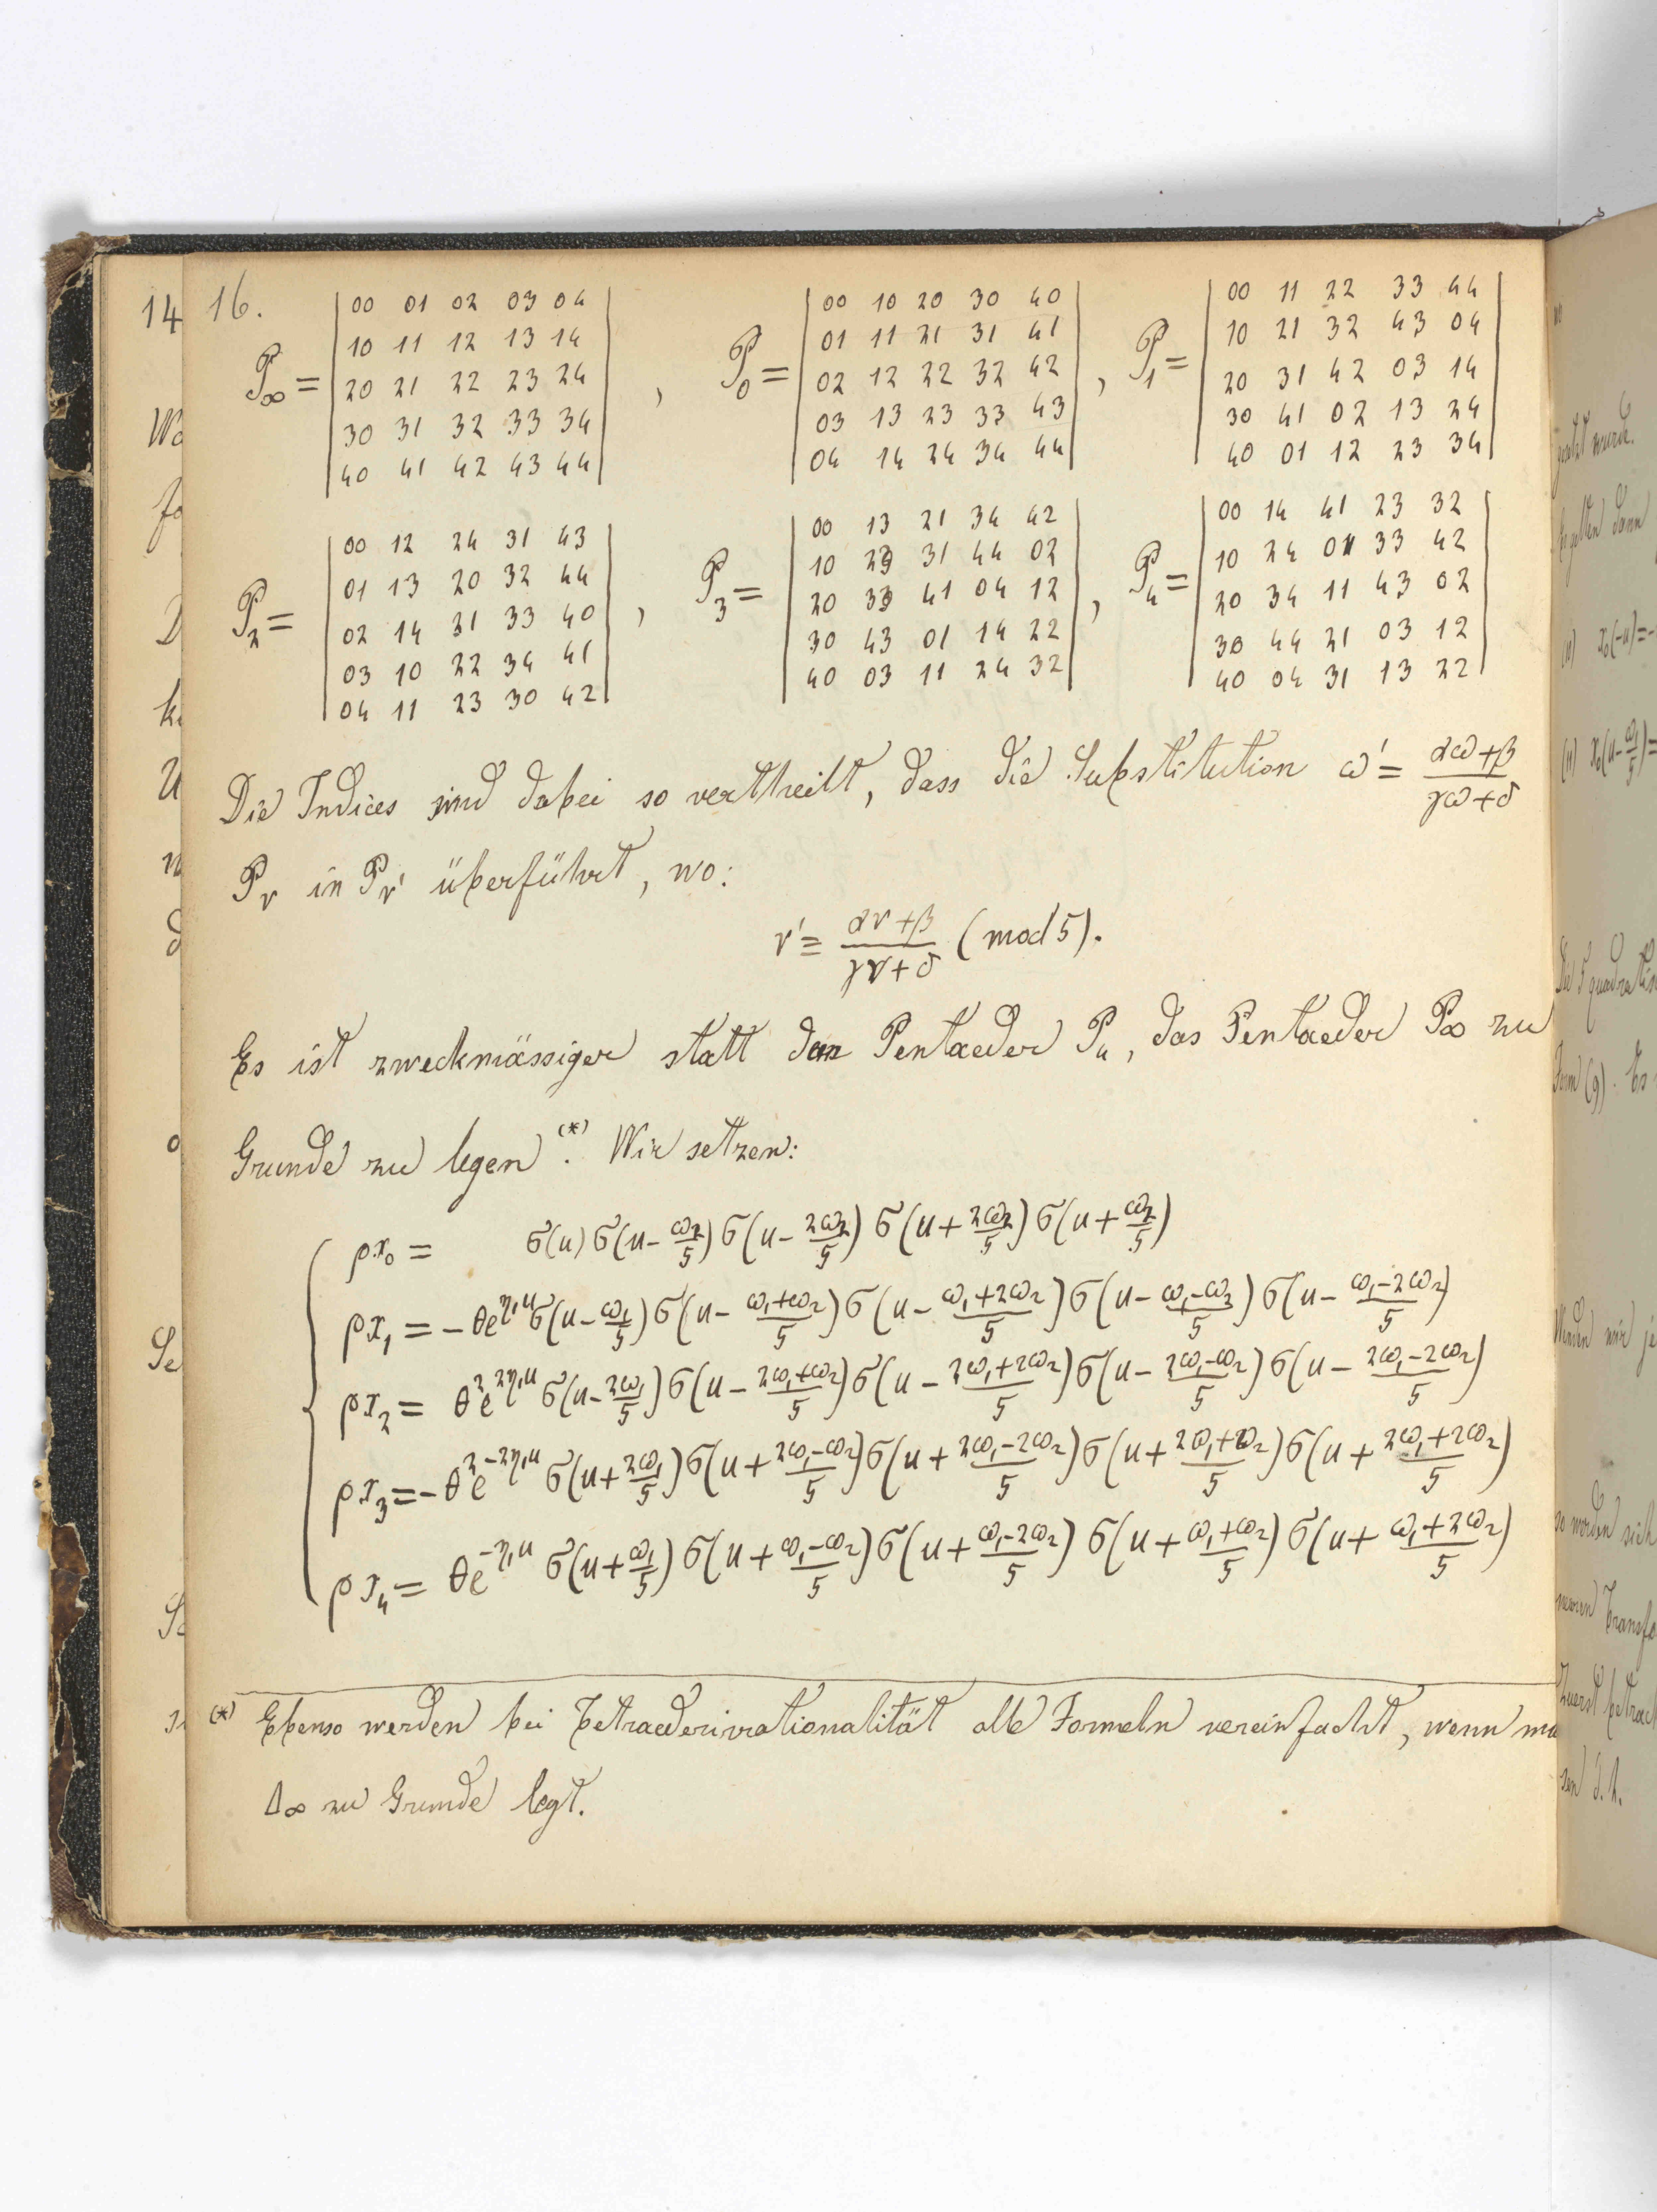 16.
P∞ = | 00 01 02 03 04 | , P₀ = | 00 10 20 30 40 | , P₁ = | 00 11 22 33 44 |
| 10 11 12 13 14 | | 01 11 21 31 41 | | 10 21 32 43 04 |
| 20 21 22 23 24 | | 02 12 22 32 42 | | 20 31 42 03 14 |
| 30 31 32 33 34 | | 03 13 23 33 43 | | 30 41 02 13 24 |
| 40 41 42 43 44 | | 04 14 24 34 44 | | 40 01 12 23 34 |
P₂ = | 00 12 24 31 43 | , P₃ = | 00 13 21 34 42 | , P₄ = | 00 14 41 23 32 |
| 01 13 20 32 44 | | 10 23 31 44 02 | | 10 24 01 33 42 |
| 02 14 21 33 40 | | 20 33 41 04 12 | | 20 34 11 43 02 |
| 03 10 22 34 41 | | 30 43 01 14 22 | | 30 44 21 03 12 |
| 04 11 23 30 42 | | 40 03 11 24 32 | | 40 04 31 13 22 |
Die Indices sind dabei so vertheilt, dass die Substitution ω' = (αω+β)/(γω+δ)
Pᵥ in Pᵥ' überführt, wo:
ν' ≡ (αν+β)/(γν+δ) (mod 5).
Es ist zweckmässiger statt den Pentaeder P₄, das Pentaeder P∞ zu
Grunde zu legen (*). Wir setzen:
ρx₀ = σ(u) σ(u − ω₂/5) σ(u − 2ω₂/5) σ(u + 2ω₂/5) σ(u + ω₂/5)
ρx₁ = −θe^{η₁u} σ(u − ω₁/5) σ(u − (ω₁+ω₂)/5) σ(u − (ω₁+2ω₂)/5) σ(u − (ω₁−ω₂)/5) σ(u − (ω₁−2ω₂)/5)
ρx₂ = θ²e^{2η₁u} σ(u − 2ω₁/5) σ(u − (2ω₁+ω₂)/5) σ(u − (2ω₁+2ω₂)/5) σ(u − (2ω₁−ω₂)/5) σ(u − (2ω₁−2ω₂)/5)
ρx₃ = −θ²e^{−2η₁u} σ(u + 2ω₁/5) σ(u + (2ω₁−ω₂)/5) σ(u + (2ω₁−2ω₂)/5) σ(u + (2ω₁+ω₂)/5) σ(u + (2ω₁+2ω₂)/5)
ρx₄ = θe^{−η₁u} σ(u + ω₁/5) σ(u + (ω₁−ω₂)/5) σ(u + (ω₁−2ω₂)/5) σ(u + (ω₁+ω₂)/5) σ(u + (ω₁+2ω₂)/5)
(*) Ebenso werden bei Tetraederirrationalität alle Formeln vereinfacht, wenn
Δ∞ zu Grunde legt.
14